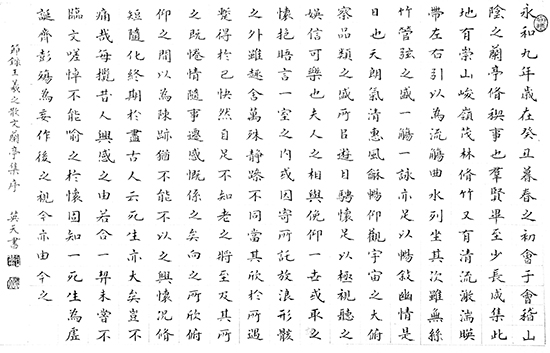 永和九年歲在癸丑暮春之初會于會稽山
陰之蘭亭脩禊事也羣賢畢至少長咸集此
地有崇山峻嶺茂林脩竹又有清流激湍暎
帶左右引以為流觴曲水列坐其次雖無絲
竹管弦之盛一觴一詠亦足以暢敘幽情是
日也天朗氣清惠風龢暢仰觀宇宙之大俯
察品類之盛所㠯遊目騁懷足以極視聽之
娛信可樂也夫人之相與俛仰一世或取之
懷抱晤言一室之內或因寄所託放浪形骸
之外雖趣舍萬殊靜躁不同當其欣於所遇
蹔得於己快然自足不知老之將至及其所
之既惓情隨事遷感慨係之矣向之所欣俯
仰之間以為陳跡猶不能不以之興懷況脩
短隨化終期於盡古人云死生亦大矣豈不
痛哉每攬昔人興感之由若合一契未嘗不
臨文嗟悼不能喻之於懷固知一死生為虛
誕齊彭殤為妄作後之視今亦由今之
節錄王羲之散文蘭亭集序 英天書